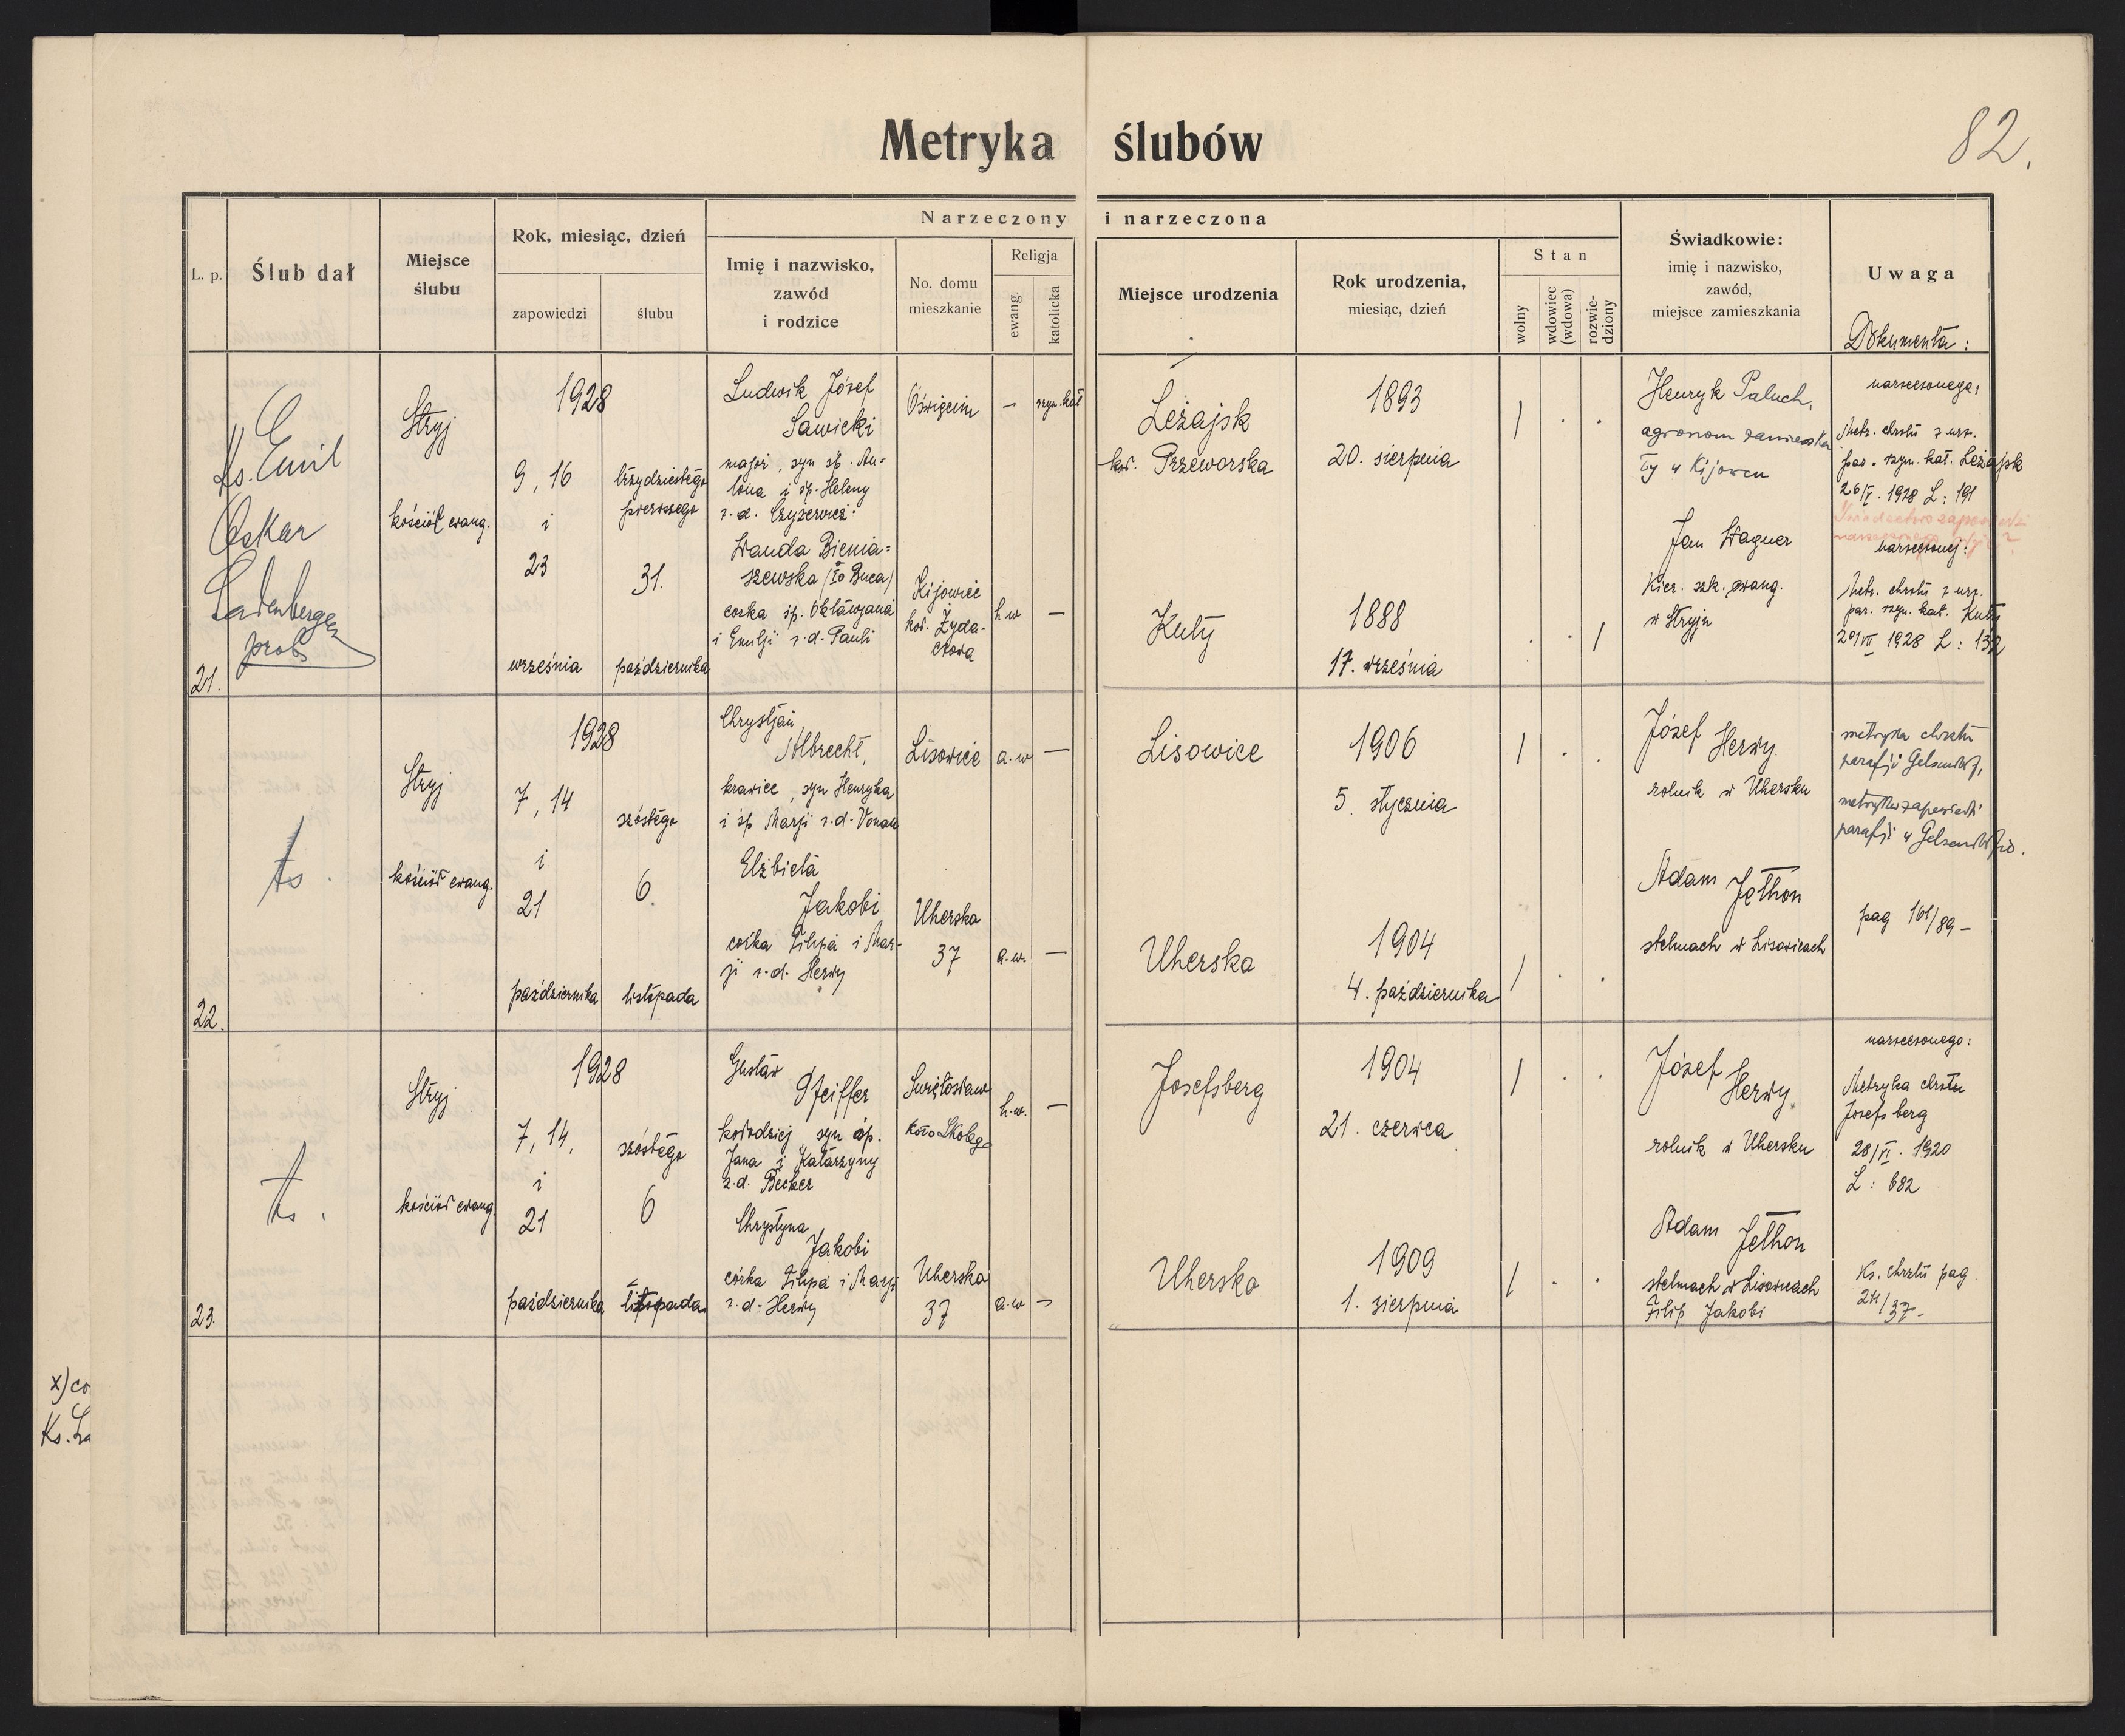 Metryka ślubów
82.
L. p.
Ślub dał
Miejsce
ślubu
Rok, miesiąc, dzień
zapowiedzi
ślubu
Narzeczony i narzeczona
Imię i nazwisko,
zawód
i rodzice
No. domu
mieszkanie
Religja
ewang.
katolicka
Miejsce urodzenia
Rok urodzenia,
miesiąc, dzień
Stan
wolny
wdowiec
(wdowa)
rozwie-
dziony
Świadkowie:
imię i nazwisko,
zawód,
miejsce zamieszkania
Uwaga
Dokumenta:
21.
Ks. Emil
Oskar
Ladenberger
prob
Stryj
kościół ewang.
1928
9, 16
i
23
września
trzydziestego
pierwszego
31.
października
Ludwik Józef
Sawicki
major, syn śp. An-
tona i śp. Heleny
z. d. Czyżewicz
Oświęcim
—
rzym. kat
Leżajsk
koł. Przeworska
1893
20. sierpnia
Wanda Bienia-
szewska (Io Buca)
corka śp. Oktawjana
i Emilji z. d. Pauli
Kijowiec
koł. Żyda-
czowa
h. w
—
Kuty
1888
17. września
Henryk Paluch,
agronom
ty w Kijowcu
Jan Wagner
Kier. szk. ewang.
w Stryju
narzeczonego,
Metr. chrztu z urz.
par. rzym. kat. Leżajsk
26/V. 1928 L: 191
narzeczonej:
Metr. chrztu z urz.
par. rzym. kat. Kuty
1928 L: 132
22.
ts.
Stryj
kościół ewang.
1928
7, 14
i
21
października
szóstego
6.
listopada
Chrystjan
Albrecht,
krawiec, syn Henryka
i śp Marji z. d. Vonau
Lisowice
a. w
—
Lisowice
1906
5. stycznia
Elżbieta
Jakobi
corka Filipa i Mar-
ji z. d. Herwy
Uherska
37
a. w.
—
Uherska
1904
4. października
Józef Herwy
rolnik w Uhersku
Adam Jethon
stelmach w Lisowicach
metryka chrztu
parafji Gelsendorf,
metryka zapowiedzi
parafji w
pag 161/89 —
23.
ts.
Stryj
kościół ewang.
1928
7, 14,
i
21
października
szóstego
6
listopada
Gustaw
Pfeiffer
kołodziej, syn śp.
Jana i Katarzyny
z. d. Becker
Swiętosław
koło Skolego
h. w.
—
Josefsberg
1904
21. czerwca
Chrystyna
Jakobi
córka Filipa i Marji
z. d. Herwy
Uherska
37
a. w
—
Uherska
1909
1. sierpnia
Józef
Herwy
rolnik w Uhersku
Adam Jethon
stelmach w Lisowicach
Filip Jakobi
narzeczonego:
Metryka chrztu
Josefsberg
28/VI. 1920
L: 682
Ks. chrztu pag
211/37 —
x) co
Ks. La